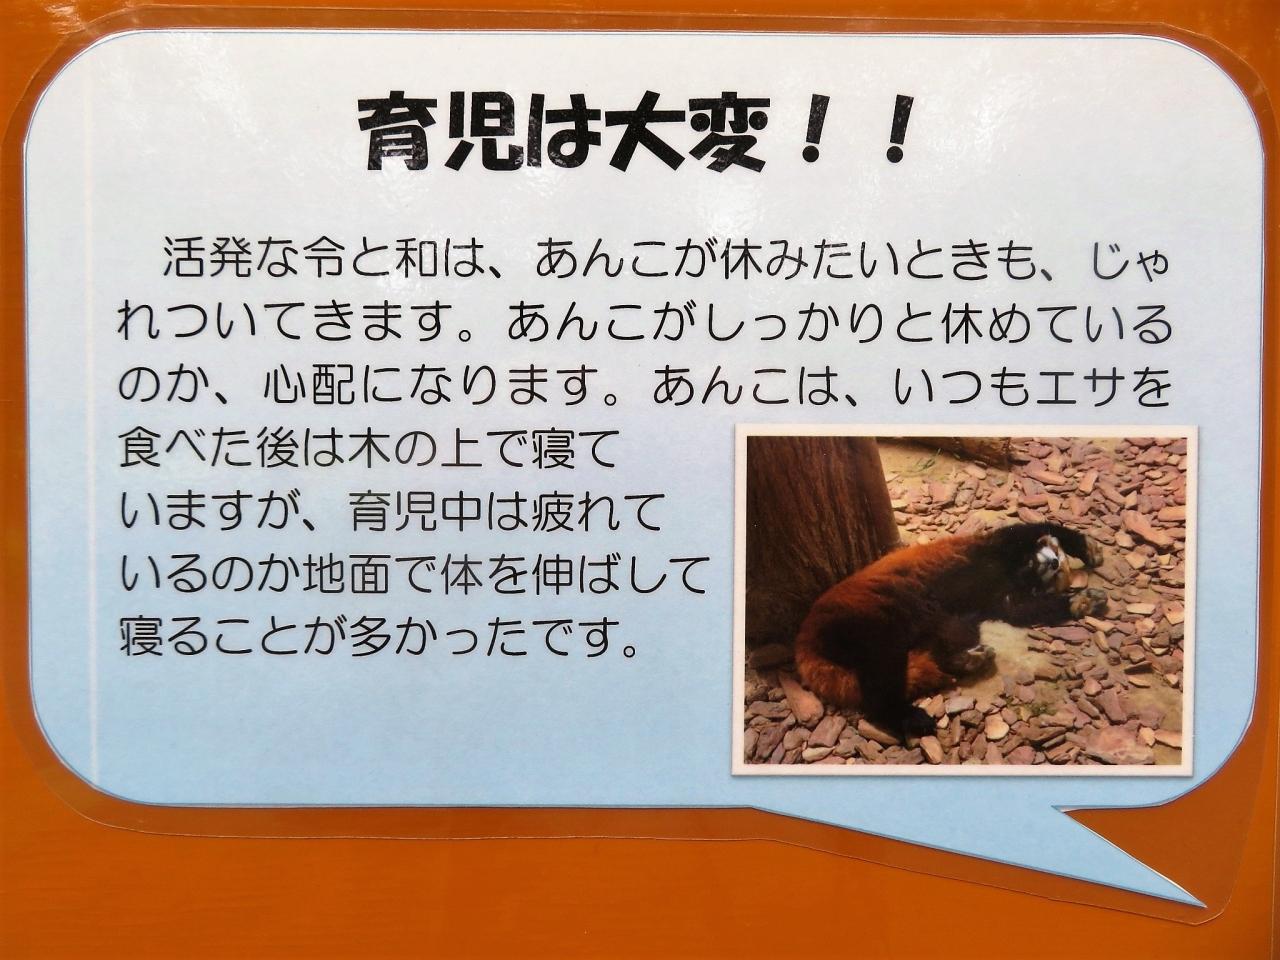 育児は大変！！
活発な令と和は、あんこが休みたいときも、じゃ
れついてきます。あんこがしっかりと休めている
のか、心配になります。あんこは、いつもエサを
食べた後は木の上で寝て
いますが、育児中は疲れて
いるのか地面で体を伸ばして
寝ることが多かったです。